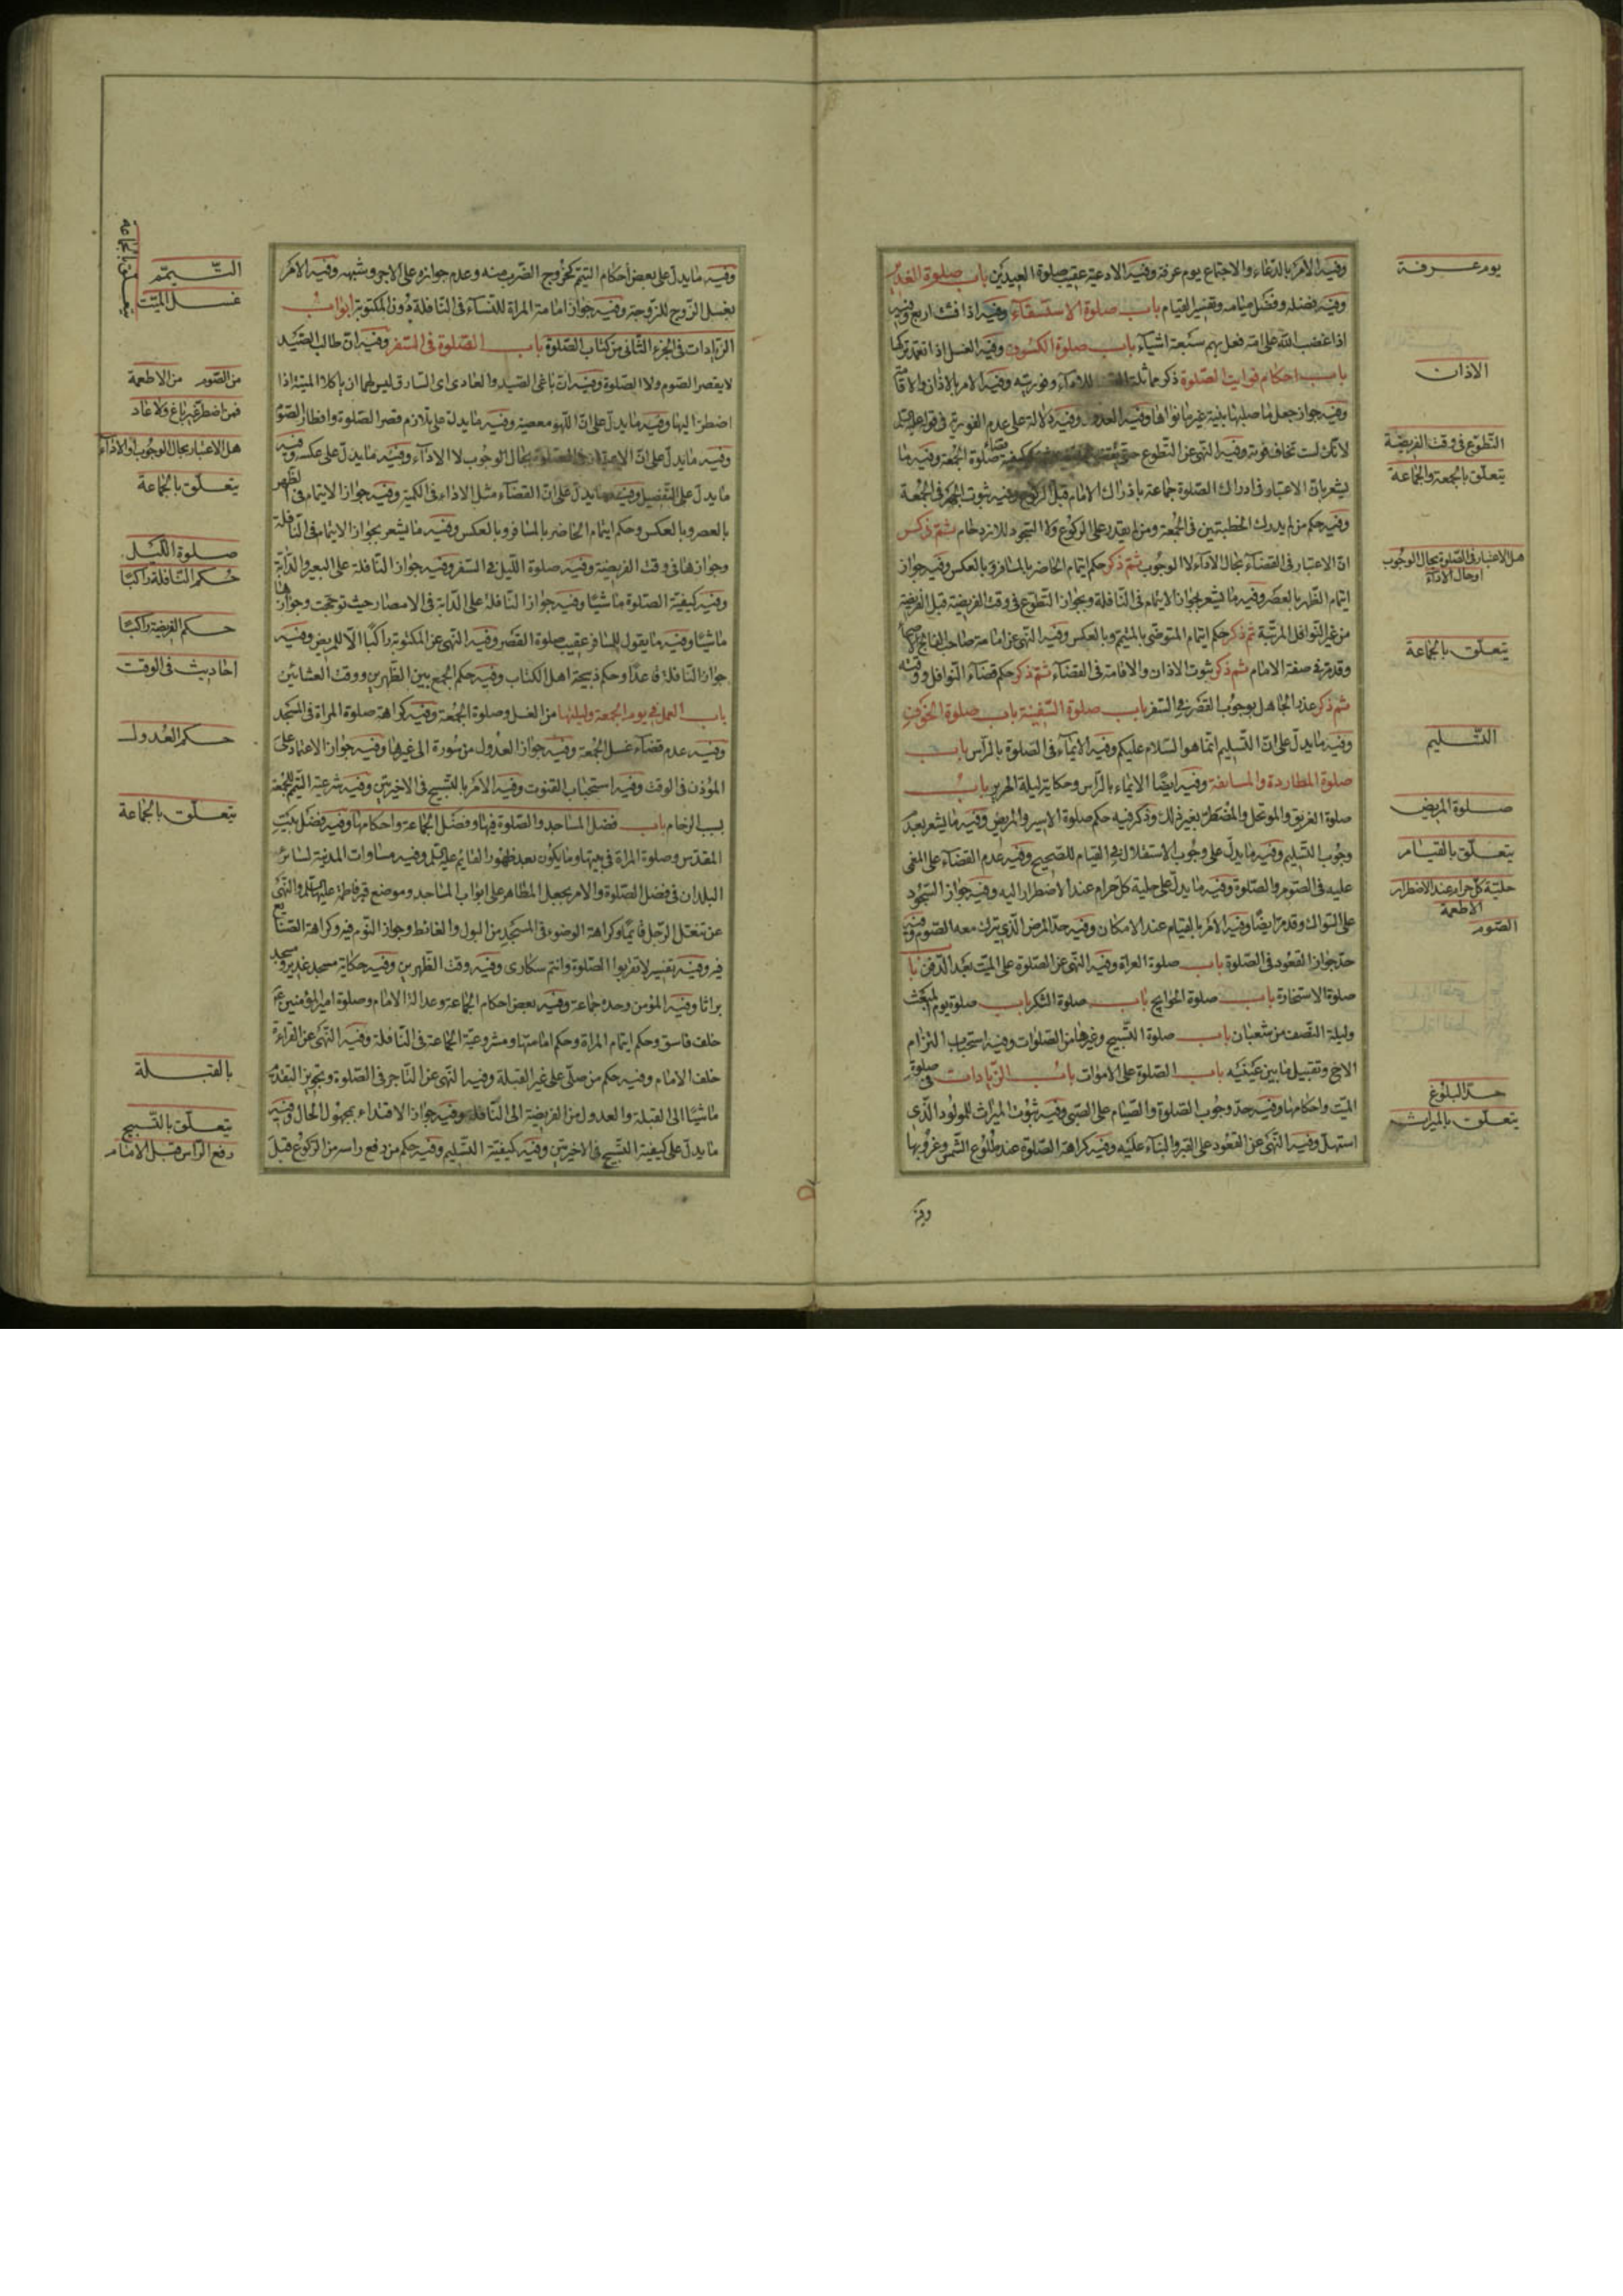 وفيه الامر بالدعاء والاجتماع يوم عرفة وفيه الادعية عقيب صلوة العيدين باب صلوة الغدير
وفيه فضله وفضل صيامه وتفسير القيام باب صلوة الاستسقاء وفيه اذا فشت اربع وفيه
اذا غضب الله على امة فعل بهم سبعة اشياء باب صلوة الكسوف وفيه الغسل اذا تعمد تركها
باب احكام فوايت الصلوة ذكر مماثلة للاداء وفوريته وفيه الامر بالاذان والاقامة
وفيه جواز جعل ما صليها بنية غير ما نواها وفيه وفيه دلالة على عدم الفورية في قوله
لانك لست تخاف فوته وفيه النهي عن التطوع كيفية قضاء صلوة الجمعة وفيه ما
يشعر بان الاعتبار في ادراك الصلوة جماعة بادراك الامام قبل الركوع وفيه ثبوت الجهر في الجمعة
وفيه حكم من لم يدرك الخطبتين في الجمعة ومن لم يقدر على الركوع ولا السجود للازدحام ثم ذكر
ان الاعتبار في القضاء بحال الاداء لا الوجوب ثم ذكر حكم ايتمام الحاضر بالمسافر وبالعكس وفيه جواز
ايتمام الظهر بالعصر وفيه ما يشعر بجواز الايتمام في النافلة وبجواز التطوع في وقت الفريضة قبل الفريضة
من غير النوافل المرتبة ثم ذكر حكم ايتمام المتوضي بالمتيمم وبالعكس وفيه النهي عن امامة صاحب الفالج
وقد مر في صفة الامام ثم ذكر ثبوت الاذان والاقامة في القضاء ثم ذكر حكم قضاء النوافل ووقته
ثم ذكر عذر الجاهل بوجوب القصر في السفر باب صلوة السفينة باب صلوة الخوف
وفيه ما يدل على ان التسليم انما هو السلام عليكم وفيه الايماء في الصلوة بالراس باب
صلوة المطاردة والمسايفة وفيه ايضا الايماء بالراس وحكاية ليلة الهرير باب
صلوة الغريق والموتحل والمضطر بغير ذلك وذكر فيه حكم صلوة الاسير والمريض وفيه ما يشعر بعدم
وجوب التسليم وفيه ما يدل على وجوب الاستقلال في القيام للصحيح وفيه عدم القضاء على المغمى
عليه في الصوم والصلوة وفيه ما يدل على حلية كل حرام عند الاضطرار اليه وفيه جواز السجود
على السواك وقد مر ايضا وفيه الامر بالقيام عند الامكان وفيه حد المرض الذي يترك معه الصوم وفيه
حد جواز القعود في الصلوة باب صلوة العراة وفيه النهي عن الصلوة على الميت بعد الدفن باب
صلوة الاستخارة باب صلوة الحوايج باب صلوة الشكر باب صلوة يوم المبعث
وليلة النصف من شعبان باب صلوة التسبيح وغيرها من الصلوات وفيه استحباب التزام
الاخ وتقبيل ما بين عينيه باب الصلوة على الاموات باب الزيادات في صلوة
الميت واحكامها وفيه حد وجوب الصلوة والصيام على الصبي وفيه ثبوت الميراث للمولود الذي
استهل وفيه النهي عن القعود على القبر والبناء عليه وفيه كراهة الصلوة عند طلوع الشمس وغروبها
وفيه
يوم عرفة
الاذان
التطوع في وقت الفريضة
يتعلق بالجمعة والجماعة
هل الاعتبار في الصلوة بحال الوجوب
او حال الاداء
يتعلق بالجماعة
التسليم
صلوة المريض
يتعلق بالقيام
حلية كل حرام عند الاضطرار
الاطعمة
الصوم
حد البلوغ
يتعلق بالميراث
وفيه ما يدل على بعض احكام التيمم كخروج الضرب منه وعدم جوازه على الاجر وشبهه وفيه الامر
بغسل الزوج للزوجة وفيه جواز امامة المراة للنساء في النافلة دون المكتوبة ابواب
الزيادات في الجزء الثاني من كتاب الصلوة باب الصلوة في السفر وفيه ان طالب الصيد
لا يقصر الصوم ولا الصلوة وفيه ان باغي الصيد والعادي اي السارق ليس لهما ان ياكلا الميتة اذا
اضطرا اليها وفيه ما يدل على ان اللهو معصية وفيه ما يدل على تلازم قصر الصلوة وافطار الصوم
وفيه ما يدل على ان الاعتبار في الصلوة بحال الوجوب لا الاداء وفيه ما يدل على عكسه وفيه
ما يدل على التفصيل وفيه ما يدل على ان القضاء مثل الاداء في الكمية وفيه جواز الايتمام في الظهر
بالعصر وبالعكس وحكم ايتمام الحاضر بالمسافر وبالعكس وفيه ما يشعر بجواز الايتمام في النافلة
وجوازها في وقت الفريضة وفيه صلوة الليل في السفر وفيه جواز النافلة على البعير والدابة
وفيه كيفية الصلوة ماشيا وفيه جواز النافلة على الدابة في الامصار حيث توجهت وجوازها
ماشيا وفيه ما يقول المسافر عقيب صلوة القصر وفيه النهي عن المكتوبة راكبا الا للمريض وفيه
جواز النافلة قاعدا وحكم ذبيحة اهل الكتاب وفيه حكم الجمع بين الظهرين ووقت العشائين
باب العمل في يوم الجمعة وليلتها من الغسل وصلوة الجمعة وفيه كراهة صلوة المراة في المسجد
وفيه عدم قضاء غسل الجمعة وفيه جواز العدول من سورة الى غيرها وفيه جواز الاعتماد على
المؤذن في الوقت وفيه استحباب القنوت وفيه الامر بالتسبيح في الاخيرتين وفيه شرعية التيمم للجمعة
بسبب الزحام باب فضل المساجد والصلوة فيها وفضل الجماعة واحكامها وفيه فضل بيت
المقدس وصلوة المراة في بيتها وما يكون بعد ظهور القايم عليه السلم وفيه مساوات المدينة لسائر
البلدان في فضل الصلوة والامر بجعل المطاهر على ابواب المساجد وموضع قبر فاطمة عليها السلم والنهي
عن تنعل الرجل قائما وكراهة الوضوء في المسجد من البول والغائط وجواز النوم فيه وكراهة الصنايع
فيه وفيه تفسير لا تقربوا الصلوة وانتم سكارى وفيه وقت الظهرين وفيه حكاية مسجد غدير ومسجد
براثا وفيه المؤمن وحده جماعة وفيه بعض احكام الجماعة وعدالة الامام وصلوة امير المؤمنين ع
خلف فاسق وحكم ايتمام المراة وحكم امامتها ومشروعية الجماعة في النافلة وفيه النهي عن القراءة
خلف الامام وفيه حكم من صلى على غير القبلة وفيه النهي عن التاخر في الصلوة وتجويز التقدم
ماشيا الى القبلة والعدول من الفريضة الى النافلة وفيه جواز الاقتداء بمجهول الحال وفيه
ما يدل على كيفية التسبيح في الاخيرتين وفيه كيفية التسليم وفيه حكم من رفع راسه من الركوع قبل
التيمم
غسل الميت
يتعلق بالجماعة
من الصوم من الاطعمة
فمن اضطر غير باغ ولا عاد
هل الاعتبار بحال الوجوب او الاداء
يتعلق بالجماعة
صلوة الليل
حكم النافلة راكبا
حكم الفريضة راكبا
احاديث في الوقت
حكم العدول
يتعلق بالجماعة
بالقبلة
يتعلق بالتسبيح
رفع الراس قبل الامام